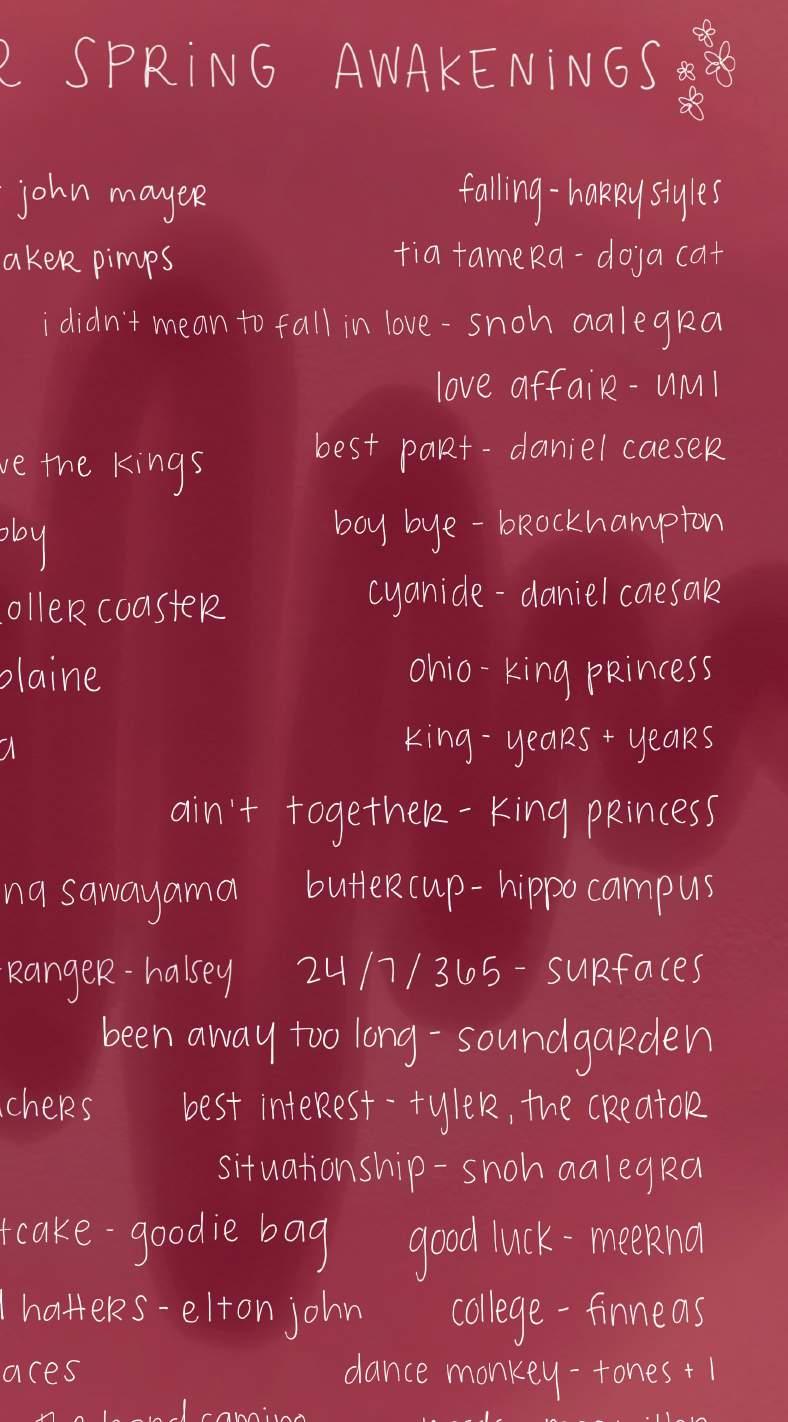 R SPRING AWAKENINGS
john mayer
falling - harry styles
aker pimps
tia tamera - doja cat
i didn't mean to fall in love - snoh aalegra
love affair - UMI
best part - daniel caeser
ve the kings
boy bye - brockhampton
oby
cyanide - daniel caesar
oller coaster
ohio - king princess
olaine
king - years + years
a
ain't together - King princess
na sawayama
buttercup - hippo campus
ranger - halsey
24/7/365 - surfaces
been away too long - soundgarden
chers
best interest - tyler, the creator
situationship - snoh aalegra
tcake - goodie bag
good luck - meerna
hatters - elton john
college - finneas
aces
dance monkey - tones + I